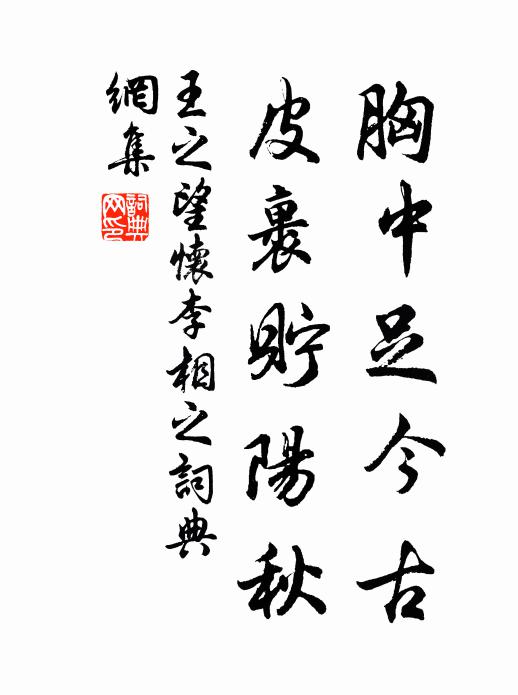 胸中足今古
皮裹貯陽秋
王之望懷李相之詞典
網集
詞典網印